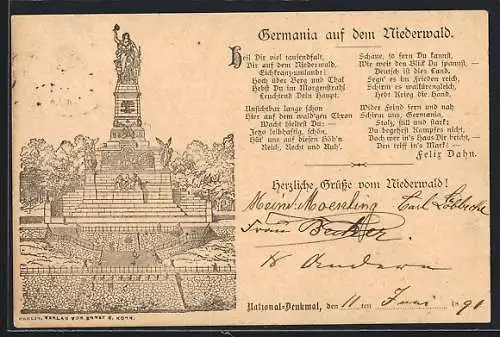 Germania auf dem Niederwald.
Heil Dir viel tausendfalt,
Dir auf dem Niederwald,
Eichkranz-umlaubt!
Hoch über Berg und Thal
Hebst Du im Morgenstrahl
Leuchtend Dein Haupt.
Unsichtbar lange schon
Hier auf dem wald'gen Thron
Wacht hieltest Du: –
Jetzt leibhaftig, schön,
Hüt' uns auf diesen Höh'n
Reich, Recht und Ruh'.
Schaue, so fern Du kannst,
Wie weit den Blick Du spannst, –
Deutsch ist dies Land.
Segn' es im Frieden reich,
Schirm es walkürengleich,
Hebt Krieg die Hand.
Wider Feind fern und nah
Schirm uns, Germania,
Stolz, still und stark:
Du begehrst Kampfes nicht,
Doch wer in's Haus Dir bricht, –
Den triff in's Mark! –
Felix Dahn.
Herzliche Grüße vom Niederwald!
Carl
Frau Becker.
Andern
National-Denkmal, den 11ten Juni 1891
VERLAG VON ERNST